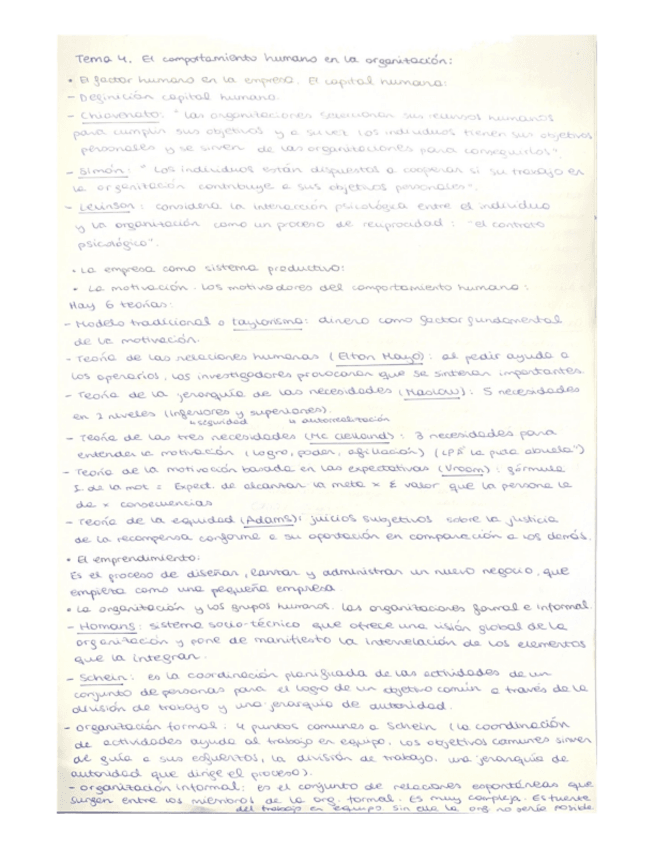 Tema 4. El comportamiento humano en la organización:
• El factor humano en la empresa. El capital humano:
- Definición capital humano.
- Chiavenato: "Las organizaciones seleccionan sus recursos humanos
para cumplir sus objetivos y a su vez los individuos tienen sus objetivos
personales y se sirven de las organizaciones para conseguirlos".
- Simón: "Los individuos están dispuestos a cooperar si su trabajo en
la organización contribuye a sus objetivos personales".
- Levinson: considera la interacción psicológica entre el individuo
y la organización como un proceso de reciprocidad: "el contrato
psicológico".
• La empresa como sistema productivo:
• La motivación. Los motivadores del comportamiento humano:
Hay 6 teorías:
- Modelo tradicional o taylorismo: dinero como factor fundamental
de la motivación.
- Teoría de las relaciones humanas (Elton Mayo): al pedir ayuda a
los operarios, los investigadores provocaron que se sintieran importantes.
- Teoría de la jerarquía de las necesidades (Maslow): 5 necesidades
en 2 niveles (inferiores y superiores).
↳ seguridad ↳ autorrealización
- Teoría de las tres necesidades (Mc Clelland): 3 necesidades para
entender la motivación (logro, poder, afiliación) (LPA "la puta abuela")
- Teoría de la motivación basada en las expectativas (Vroom): fórmula
I. de la mot = Expect. de alcanzar la meta x Σ valor que la persona le
da x consecuencias
- Teoría de la equidad (Adams): juicios subjetivos sobre la justicia
de la recompensa conforme a su aportación en comparación a los demás.
• El emprendimiento:
Es el proceso de diseñar, lanzar y administrar un nuevo negocio, que
empieza como una pequeña empresa.
• La organización y los grupos humanos. Las organizaciones formal e informal.
- Homans: sistema socio-técnico que ofrece una visión global de la
organización y pone de manifiesto la interrelación de los elementos
que la integran.
- Schein: es la coordinación planificada de las actividades de un
conjunto de personas para el logro de un objetivo común a través de la
división de trabajo y una jerarquía de autoridad.
- Organización formal: 4 puntos comunes a Schein (la coordinación
de actividades ayuda al trabajo en equipo, los objetivos comunes sirven
de guía a sus esfuerzos, la división de trabajo, una jerarquía de
autoridad que dirige el proceso).
- Organización informal: es el conjunto de relaciones espontáneas que
surgen entre los miembros de la org. formal. Es muy compleja. Es fuente
del trabajo en equipo sin ella la org no sería posible